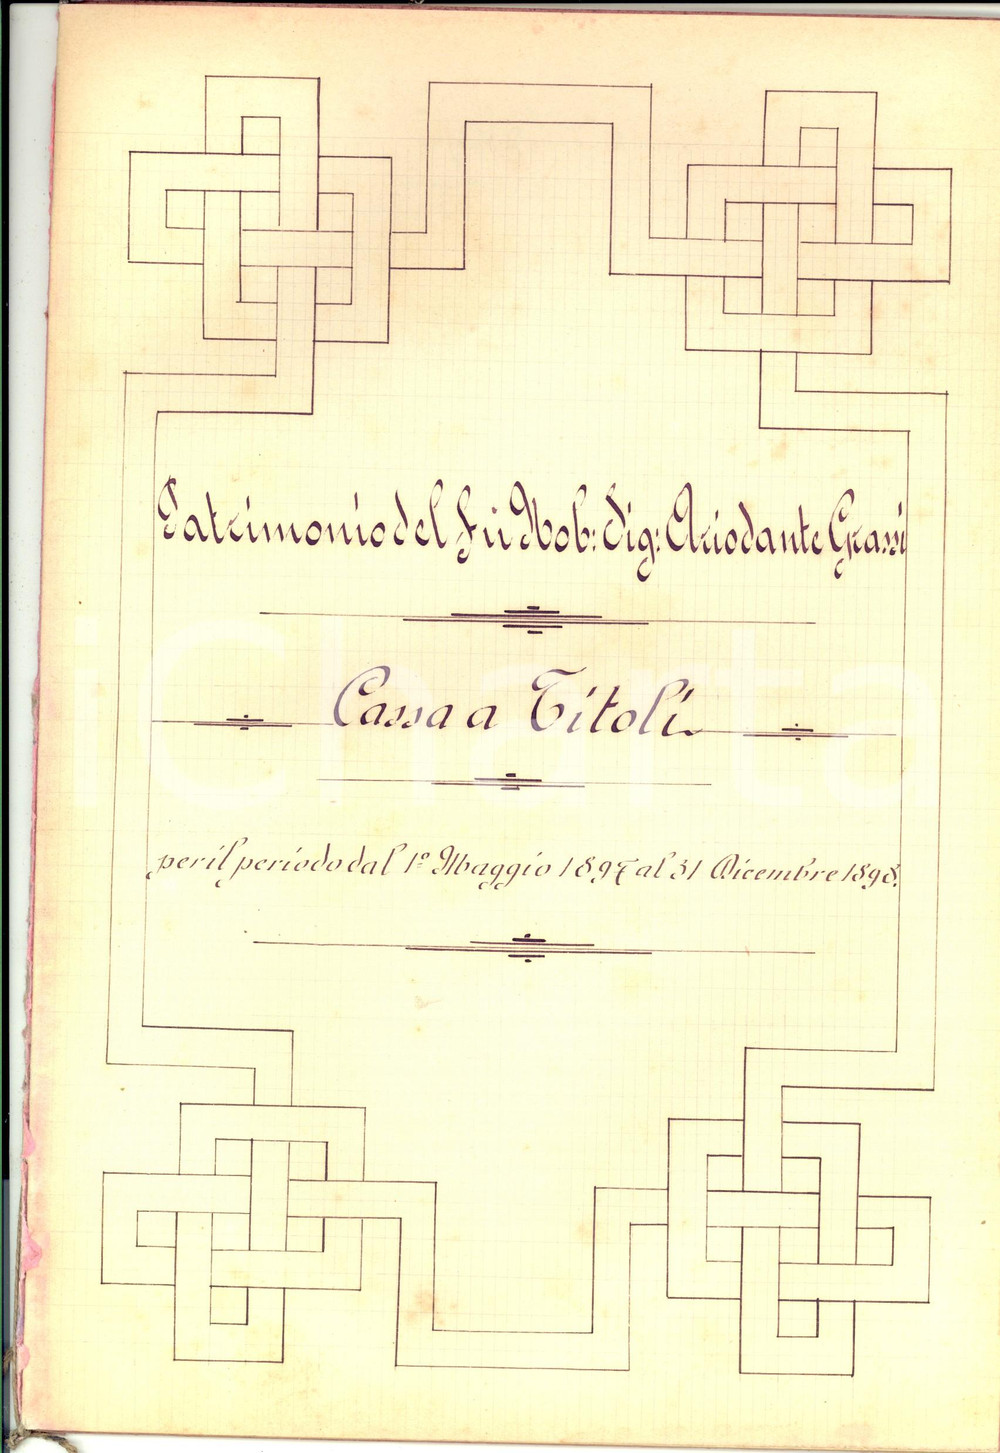 Patrimonio del fu Nob: Sig: Ariodante Grassi
Cassa a Titoli
per il periodo dal 1º Maggio 1897 al 31 Dicembre 1898.
iCharta